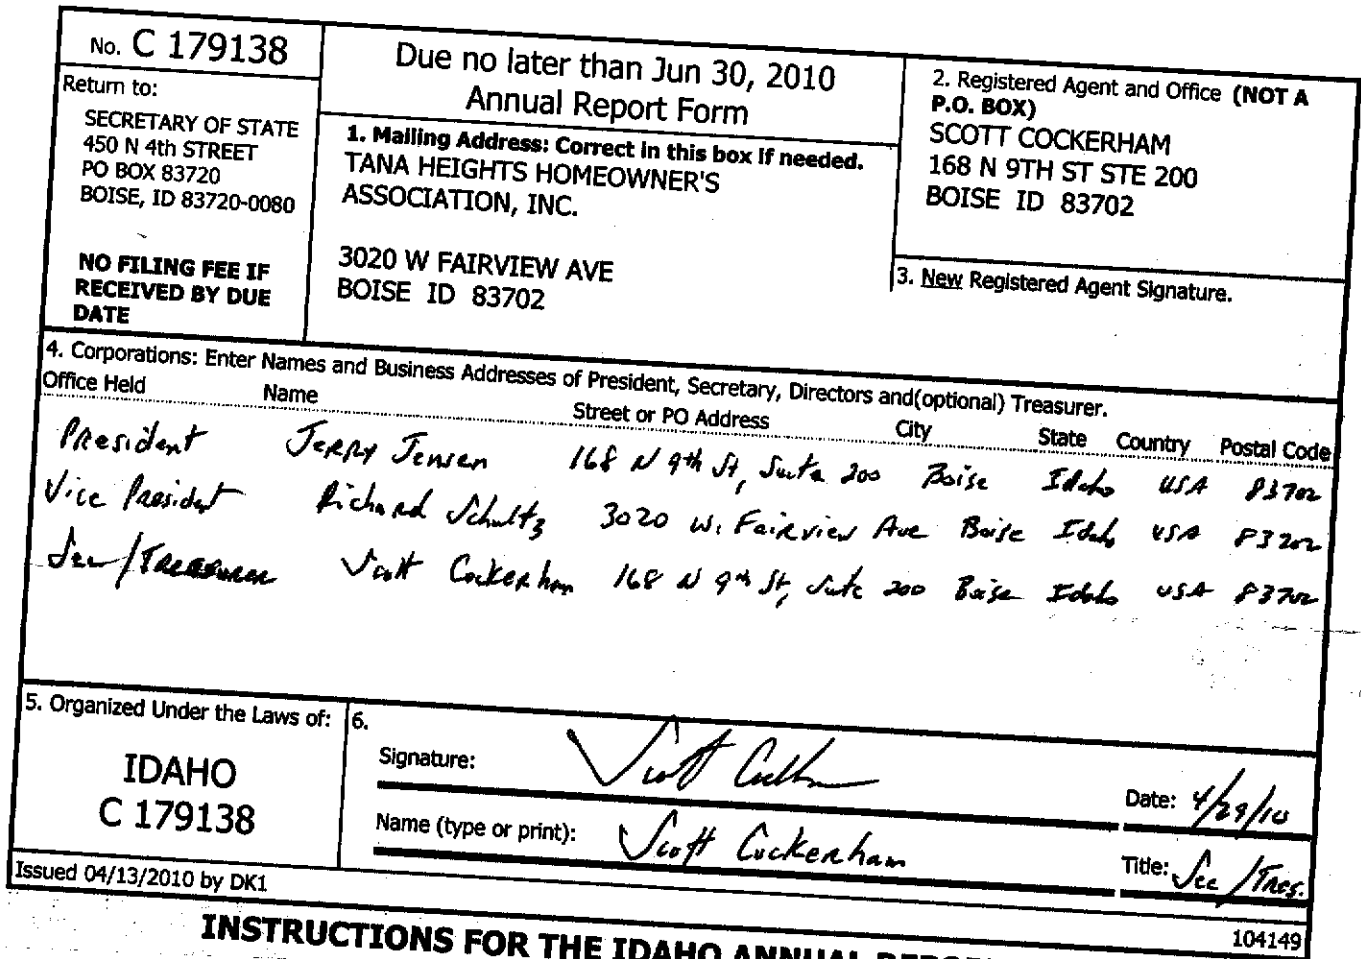 No. C 179138
Return to:
SECRETARY OF STATE
450 N 4th STREET
PO BOX 83720
BOISE, ID 83720-0080
NO FILING FEE IF
RECEIVED BY DUE
DATE
Due no later than Jun 30, 2010
Annual Report Form
1. Mailing Address: Correct in this box if needed.
TANA HEIGHTS HOMEOWNER'S
ASSOCIATION, INC.
3020 W FAIRVIEW AVE
BOISE ID 83702
2. Registered Agent and Office (NOT A
P.O. BOX)
SCOTT COCKERHAM
168 N 9TH ST STE 200
BOISE ID 83702
3. New Registered Agent Signature.
4. Corporations: Enter Names and Business Addresses of President, Secretary, Directors and(optional) Treasurer.
Office Held Name Street or PO Address City State Country Postal Code
President Jerry Jensen 168 N 9th St, Suite 200 Boise Idaho USA 83702
Vice President Richard Schultz 3020 W. Fairview Ave Boise Idaho USA 83702
Sec/Treasurer Scott Cockerham 168 N 9th St, Suite 200 Boise Idaho USA 83702
5. Organized Under the Laws of:
IDAHO
C 179138
6.
Signature: Scott Cockerham
Date: 4/29/10
Name (type or print): Scott Cockerham
Title: Sec/Tres.
Issued 04/13/2010 by DK1
104149
INSTRUCTIONS FOR THE IDAHO ANNUAL REPORT